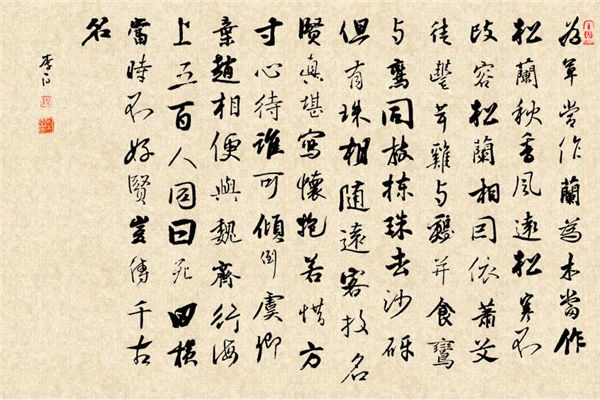 為草當作蘭為木當作
松蘭秋香風遠松寒不
改容松蘭相因依蕭艾
徒豐茸雞与雞并食鸞
与鸞同枝揀珠去沙礫
但有珠相隨遠客投名
賢眞堪寫懷抱若惜方
寸心待誰可傾倒虞卿
棄趙相便與魏齊行海
上五百人同日死田橫
當時不好賢豈傳千古
名
李白